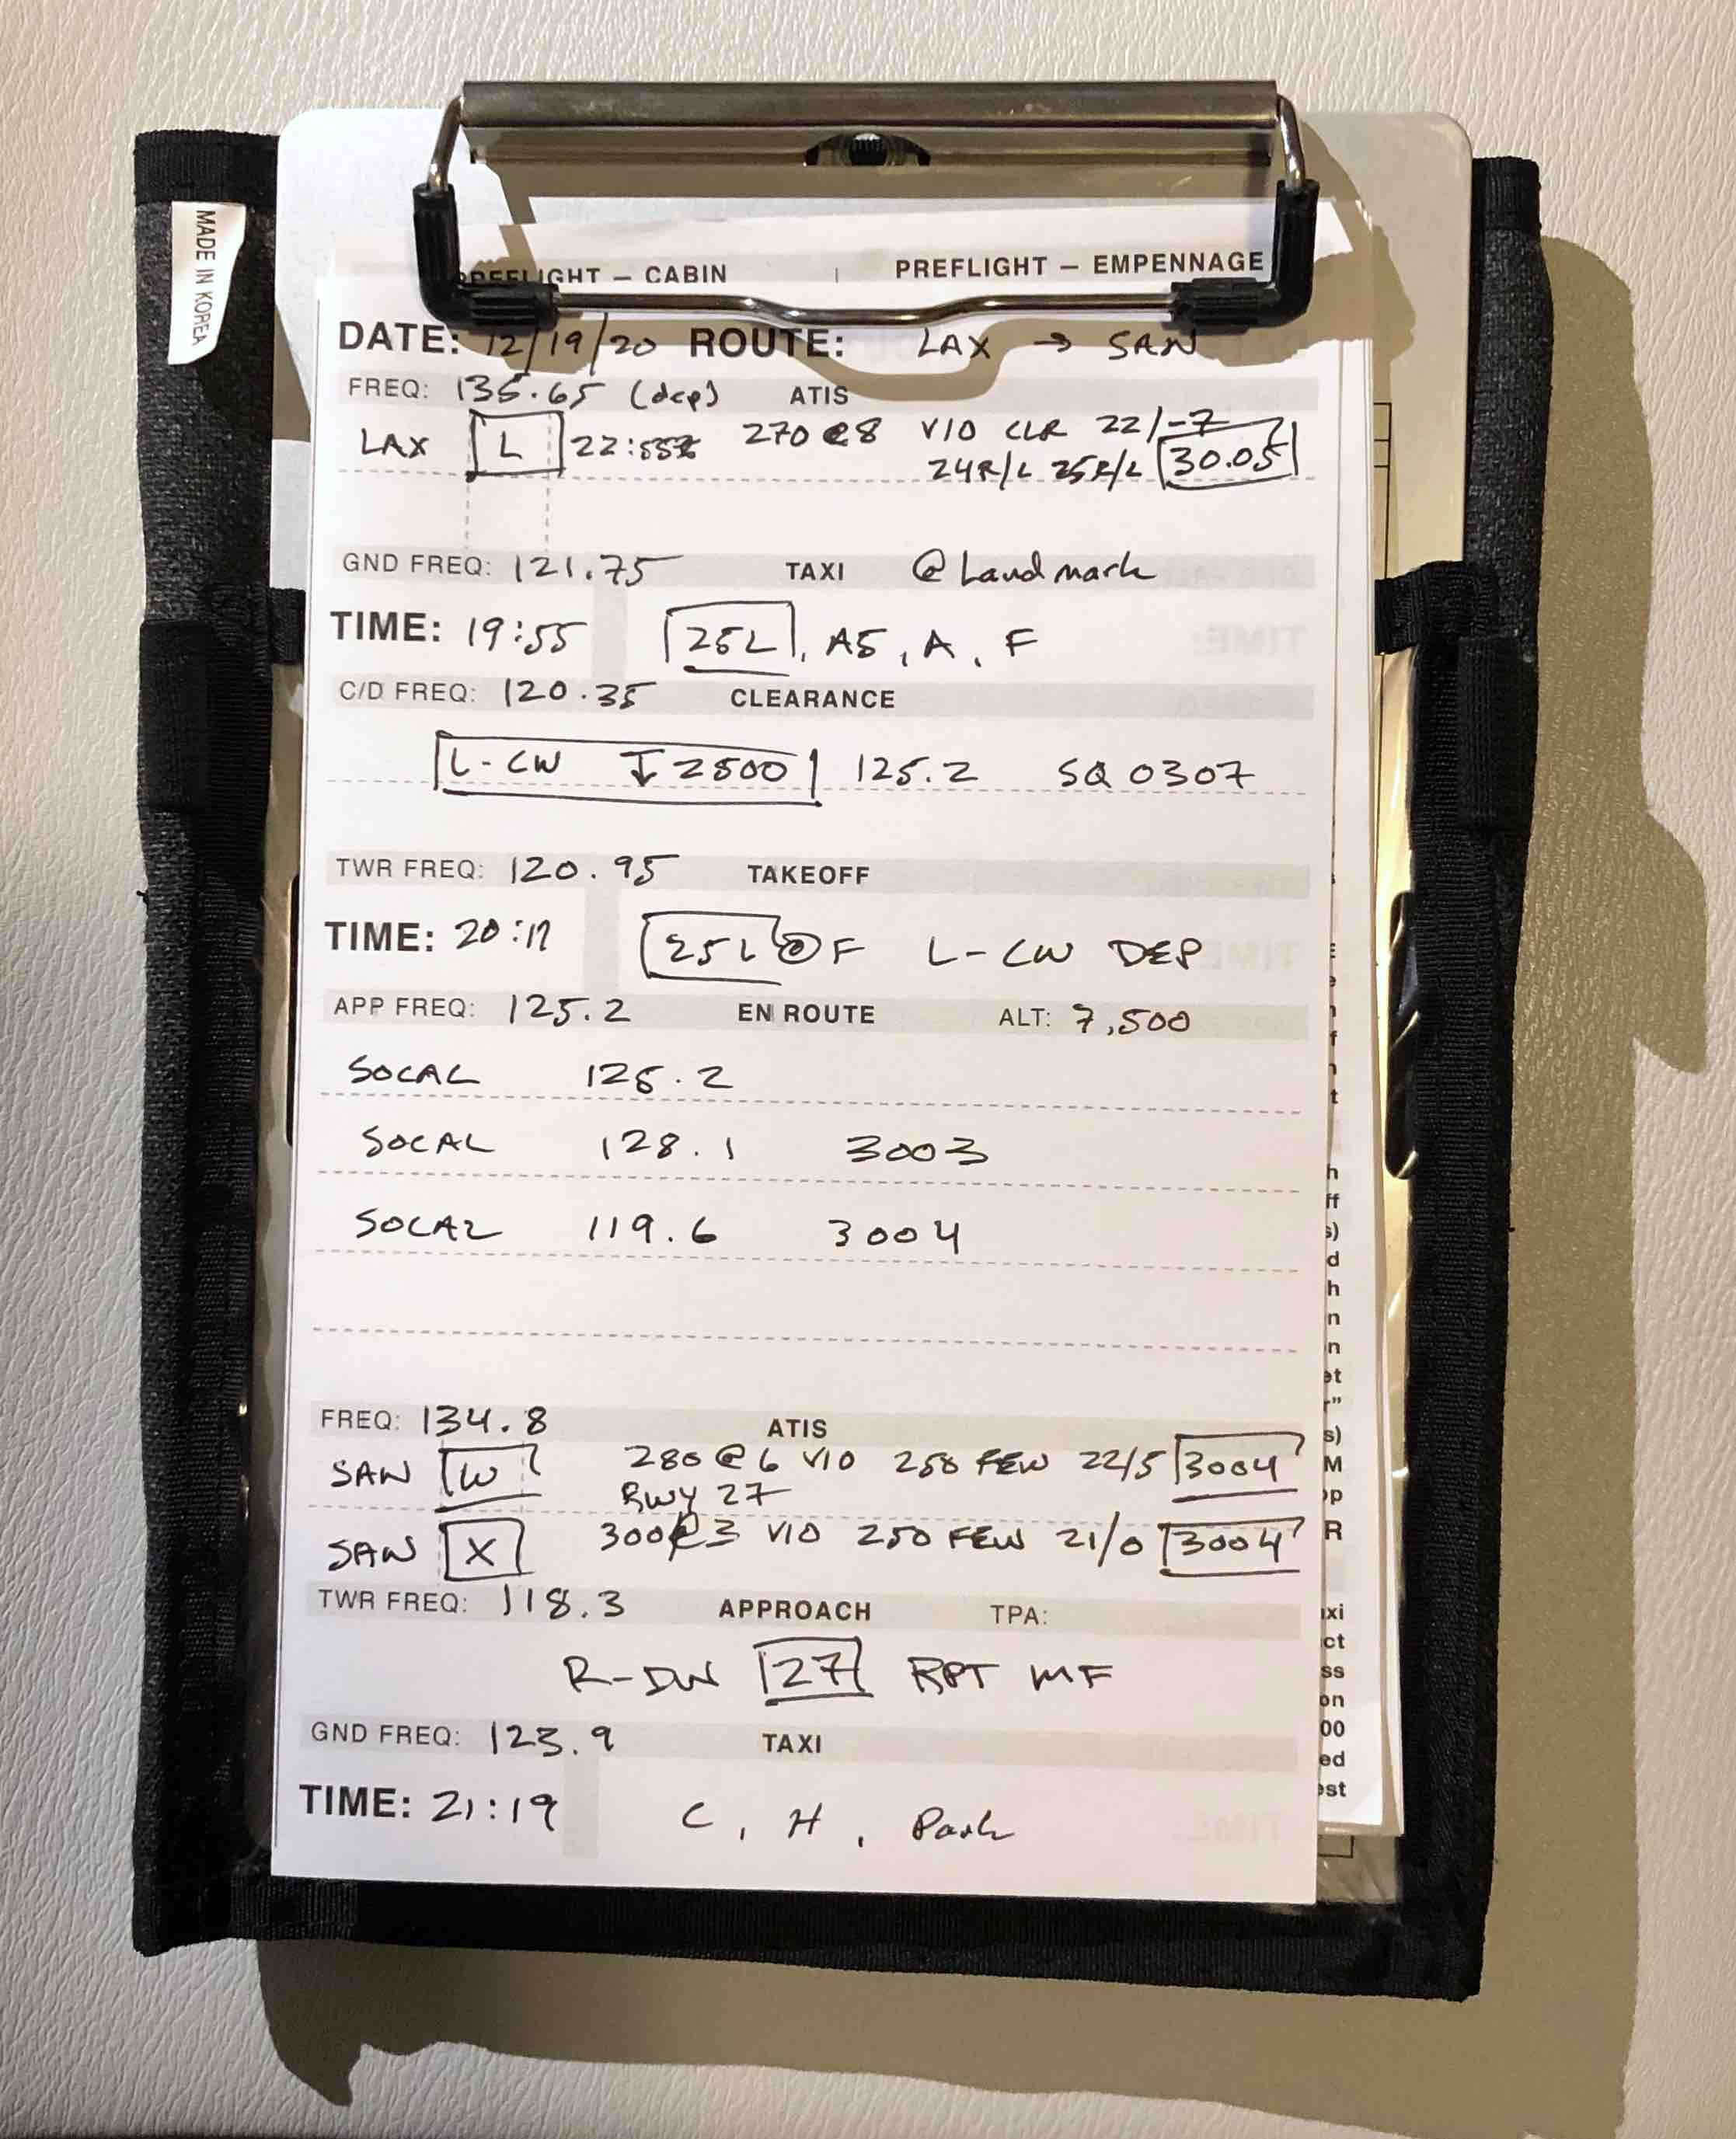 MADE IN KOREA
PREFLIGHT – CABIN | PREFLIGHT – EMPENNAGE
DATE: 12/19/20 ROUTE: LAX → SAN
FREQ: 135.65 (dep) ATIS
LAX L 22:55Z 270@8 V10 CLR 22/-7
24R/L 25R/L 30.05
GND FREQ: 121.75 TAXI @Landmark
TIME: 19:55 25L, A5, A, F
C/D FREQ: 120.35 CLEARANCE
L-CW ↧2500 125.2 SQ 0307
TWR FREQ: 120.95 TAKEOFF
TIME: 20:11 25L@F L-CW DEP
APP FREQ: 125.2 EN ROUTE ALT: 7,500
SOCAL 125.2
SOCAL 128.1 3003
SOCAL 119.6 3004
FREQ: 134.8 ATIS
SAN W 280@6 V10 250 FEW 22/5 3004
RWY 27
SAN X 300@3 V10 250 FEW 21/0 3004
TWR FREQ: 118.3 APPROACH TPA:
R-DW 27 RPT MF
GND FREQ: 123.9 TAXI
TIME: 21:19 C, H, Park
h
ff
s)
d
h
n
n
et
s)
M
op
R
axi
ct
ss
on
00
ed
est